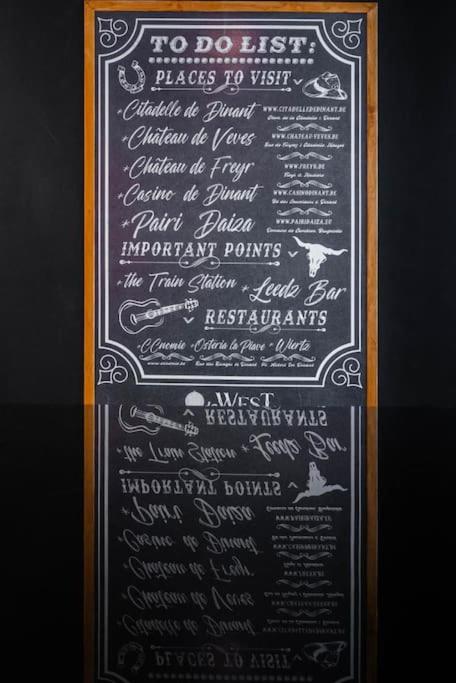 TO DO LIST:
PLACES TO VISIT
*Citadelle de Dinant WWW.CITADELLEDEDINANT.BE
*Château de Veves WWW.CHATEAU-VEVES.BE
*Château de Freyr WWW.FREYR.BE
*Casino de Dinant WWW.CASINODINANT.BE
*Pairi Daiza WWW.PAIRIDAIZA.EU
IMPORTANT POINTS
*the Train Station *Leedz Bar
RESTAURANTS
*CCnomie *Osteria la Piave *Wiertz
WEST